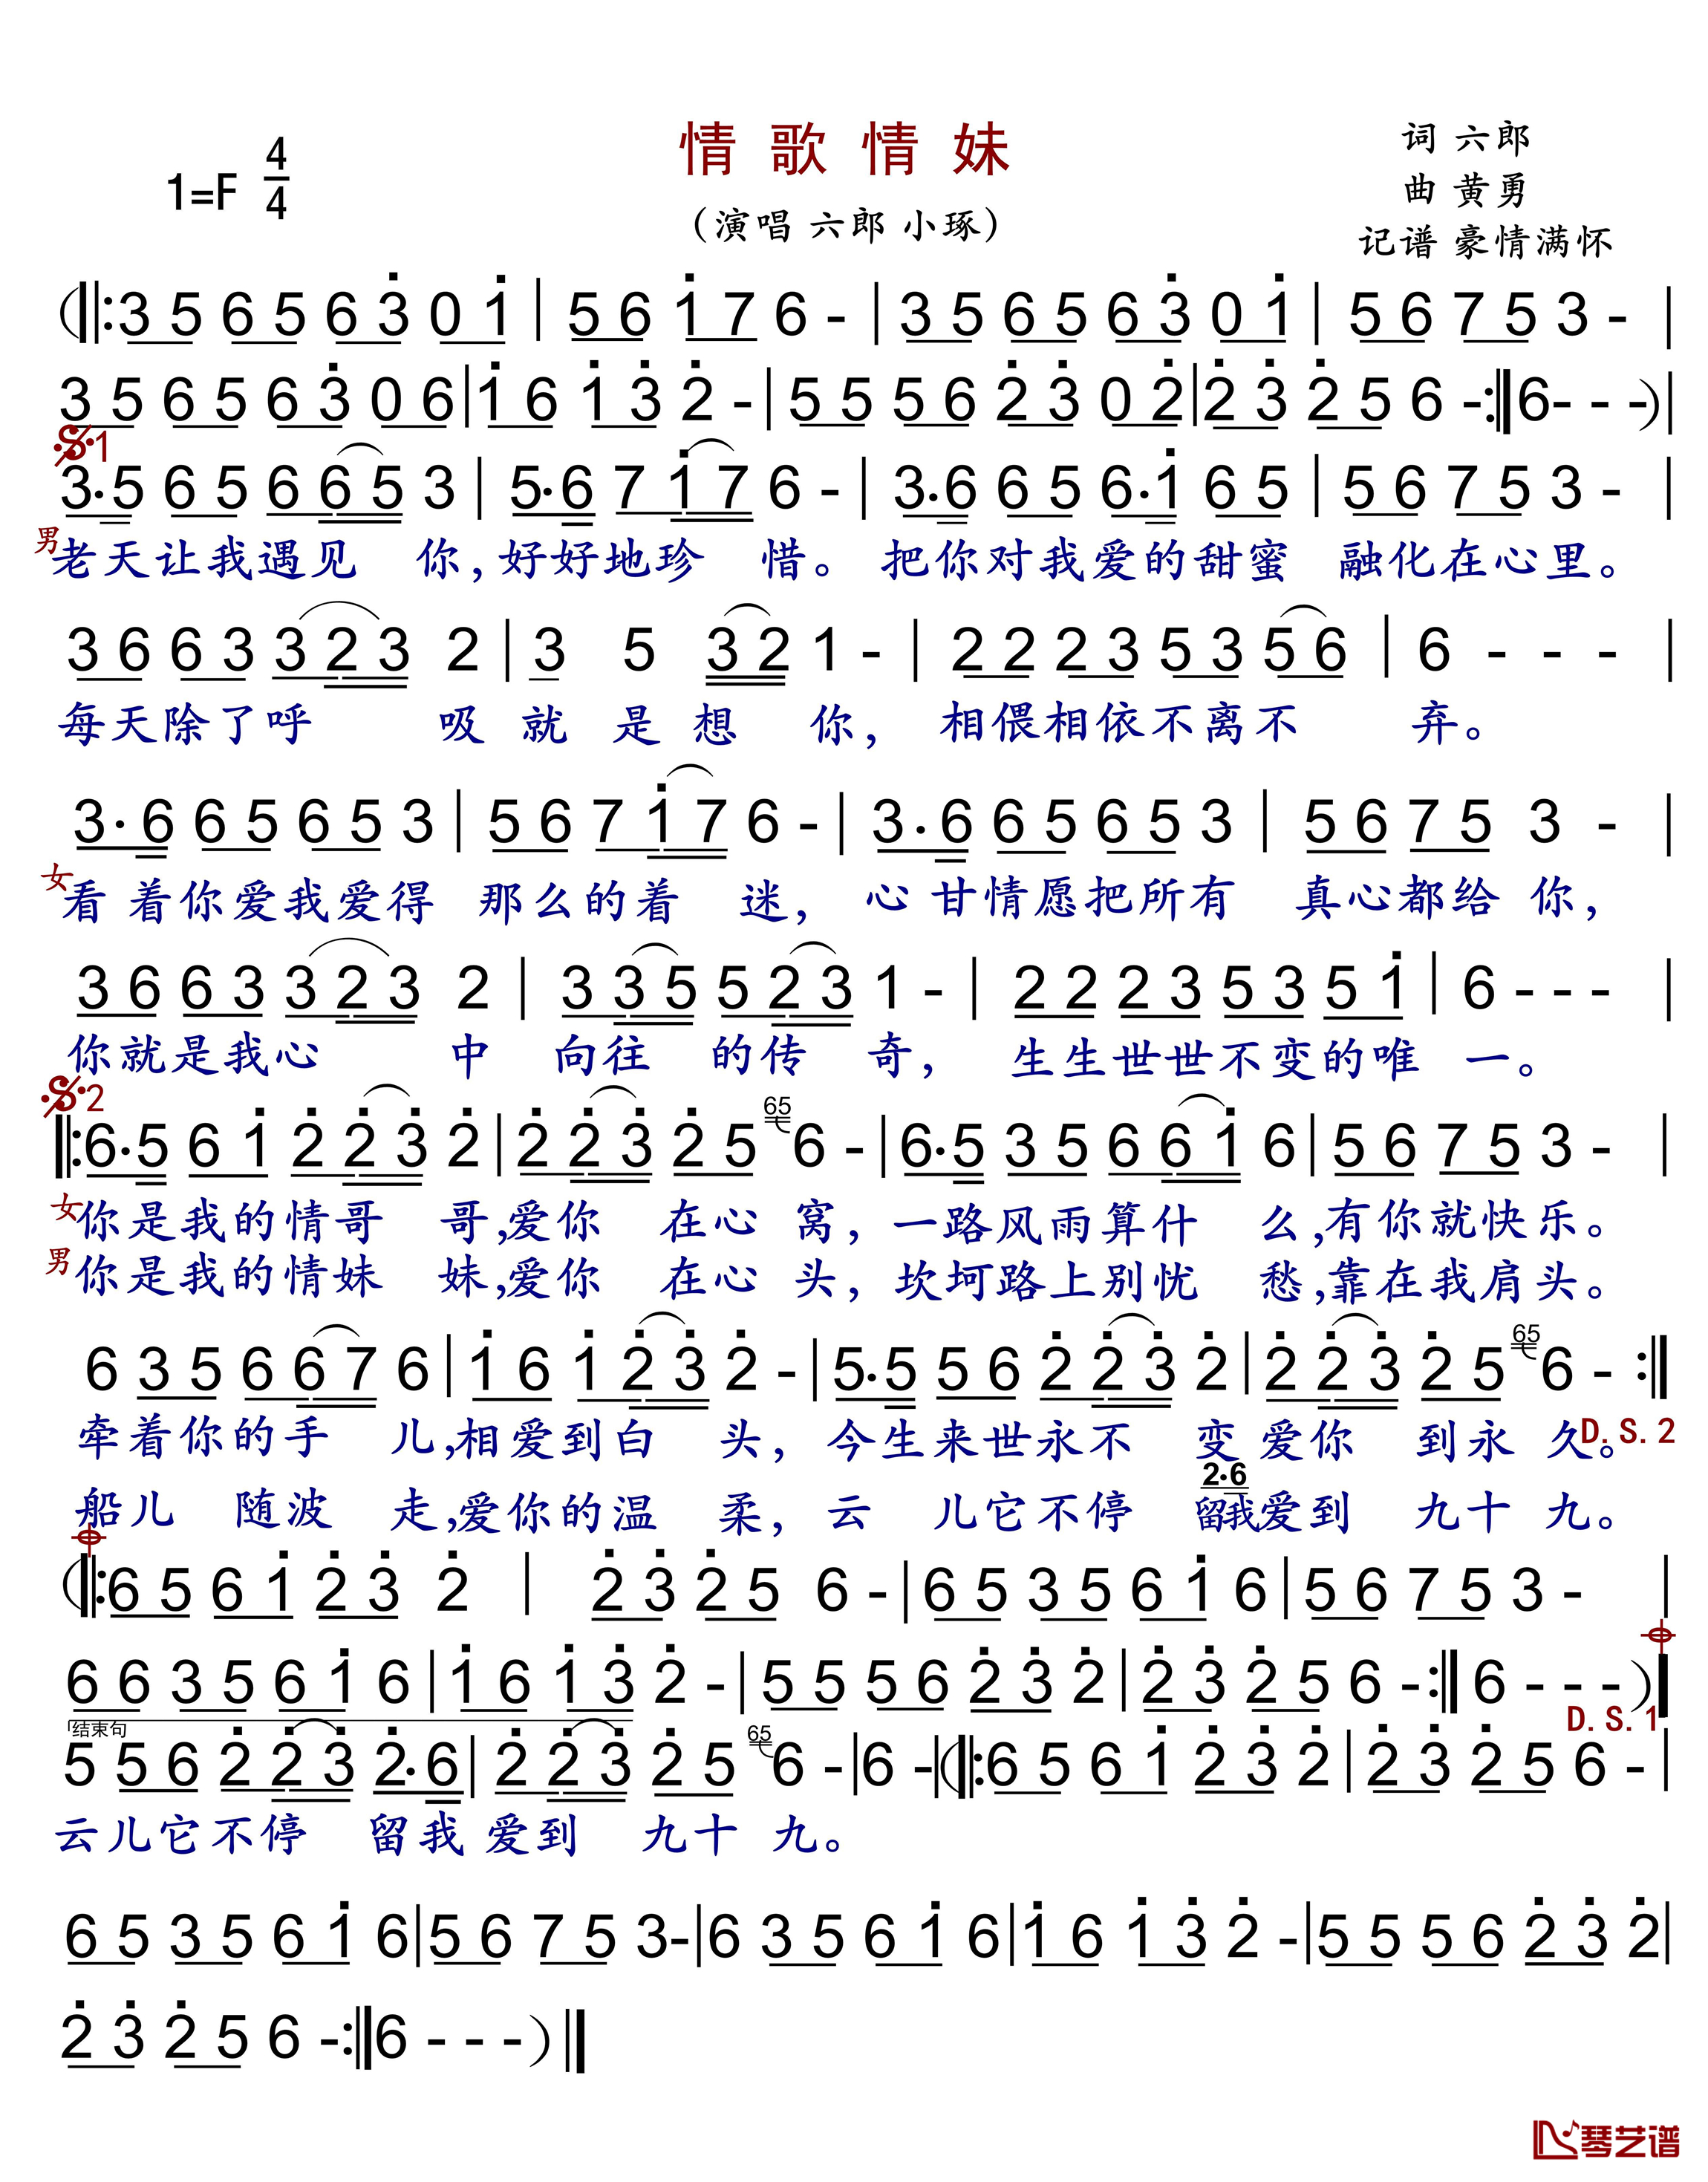 情歌情妹
1=F 4/4
词 六郎
曲 黄勇
(演唱 六郎 小琢)
记谱 豪情满怀
(‖:3 5 6 5 6 3̇ 0 1̇ | 5 6 1̇ 7 6 - | 3 5 6 5 6 3̇ 0 1̇ | 5 6 7 5 3 - |
3 5 6 5 6 3̇ 0 6 | 1̇ 6 1̇ 3̇ 2̇ - | 5 5 5 6 2̇ 3̇ 0 2̇ | 2̇ 3̇ 2̇ 5 6 - :‖ 6 - - - ) |
𝄋1
3·5 6 5 6 6 5 3 | 5·6 7 1̇ 7 6 - | 3·6 6 5 6·1̇ 6 5 | 5 6 7 5 3 - |
男 老天让我遇见 你,好好地珍 惜。 把你对我爱的甜蜜 融化在心里。
3 6 6 3 3 2 3 2 | 3 5 3 2 1 - | 2 2 2 3 5 3 5 6 | 6 - - - |
每天除了呼 吸 就 是 想 你, 相偎相依不离不 弃。
3·6 6 5 6 5 3 | 5 6 7 1̇ 7 6 - | 3·6 6 5 6 5 3 | 5 6 7 5 3 - |
女 看 着你爱我爱得 那么的着 迷, 心 甘情愿把所有 真心都给 你,
3 6 6 3 3 2 3 2 | 3 3 5 5 2 3 1 - | 2 2 2 3 5 3 5 1̇ | 6 - - - |
你就是我心 中 向往 的传 奇, 生生世世不变的唯 一。
𝄋2
‖:6·5 6 1̇ 2̇ 2̇ 3̇ 2̇ | 2̇ 2̇ 3̇ 2̇ 5 65 6 - | 6·5 3 5 6 6 1̇ 6 | 5 6 7 5 3 - |
女 你是我的情哥 哥,爱你 在心 窝, 一路风雨算什 么,有你就快乐。
男 你是我的情妹 妹,爱你 在心 头, 坎坷路上别忧 愁,靠在我肩头。
6 3 5 6 6 7 6 | 1̇ 6 1̇ 2̇ 3̇ 2̇ - | 5·5 5 6 2̇ 2̇ 3̇ 2̇ | 2̇ 2̇ 3̇ 2̇ 5 65 6 - :‖
牵着你的手 儿,相爱到白 头, 今生来世永不 变 爱你 到永 久。 D.S.2
2·6
船儿 随波 走,爱你的温 柔, 云 儿它不停 留我爱到 九十九。
(‖:6 5 6 1̇ 2̇ 3̇ 2̇ | 2̇ 3̇ 2̇ 5 6 - | 6 5 3 5 6 1̇ 6 | 5 6 7 5 3 - |
6 6 3 5 6 1̇ 6 | 1̇ 6 1̇ 3̇ 2̇ - | 5 5 5 6 2̇ 3̇ 2̇ | 2̇ 3̇ 2̇ 5 6 - :‖ 6 - - - )|
结束句
D.S.1
5 5 6 2̇ 2̇ 3̇ 2̇·6 | 2̇ 2̇ 3̇ 2̇ 5 65 6 - | 6 - |(‖:6 5 6 1̇ 2̇ 3̇ 2̇ | 2̇ 3̇ 2̇ 5 6 - |
云儿它不停 留我 爱到 九十 九。
6 5 3 5 6 1̇ 6 | 5 6 7 5 3 - | 6 3 5 6 1̇ 6 | 1̇ 6 1̇ 3̇ 2̇ - | 5 5 5 6 2̇ 3̇ 2̇ |
2̇ 3̇ 2̇ 5 6 - :‖ 6 - - - ) ‖
琴艺谱